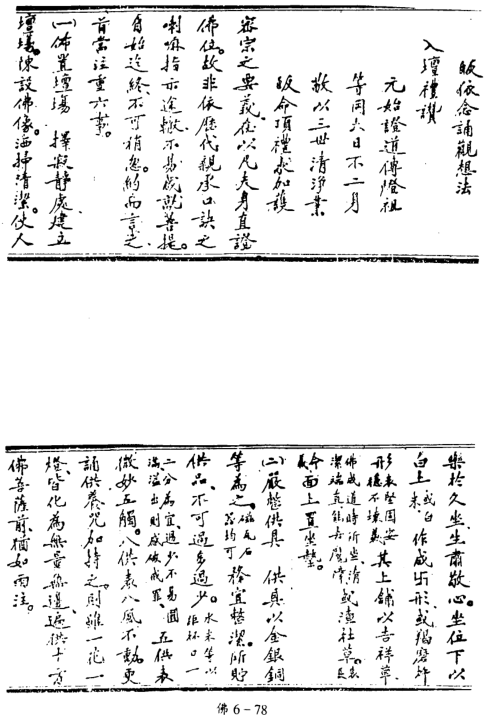 皈依念誦觀想法
入壇禮讚
元始證道傳燈祖
等同六日不二月
敬以三世清淨業
皈命頂禮求加護
密宗之要義在以凡夫身直證
佛位故非依歷代親承口訣之
喇嘛指示途轍不易成就菩提。
自始迄終不可稍忽約而言之、
首當注重六事。
(一)佈置壇場 擇寂靜處建立
壇場。陳設佛像。洒掃清潔。使人
樂於久坐。生肅敬心。坐位下以
白土或白米。作成卐形或羯磨杵
形表堅固安穩不壞義其上鋪以吉祥草
佛成道時所坐清潔端直能去魔障或渣社草。表長
命面上置坐墊。
(二)嚴整供具 供具以金銀銅
等為之。磁瓦石器均可 務宜整潔所貯
供品、不可過多過少。水米等以距杯口一
二分為宜過少不易圓滿溢出則成破戒罪、五供表
微妙五觸。八供表八風不動。更
誦供養咒加持之。則雖一花一
燈、皆化為無量無邊、遍供十方
佛菩薩前、猶如雨注。
佛6-78